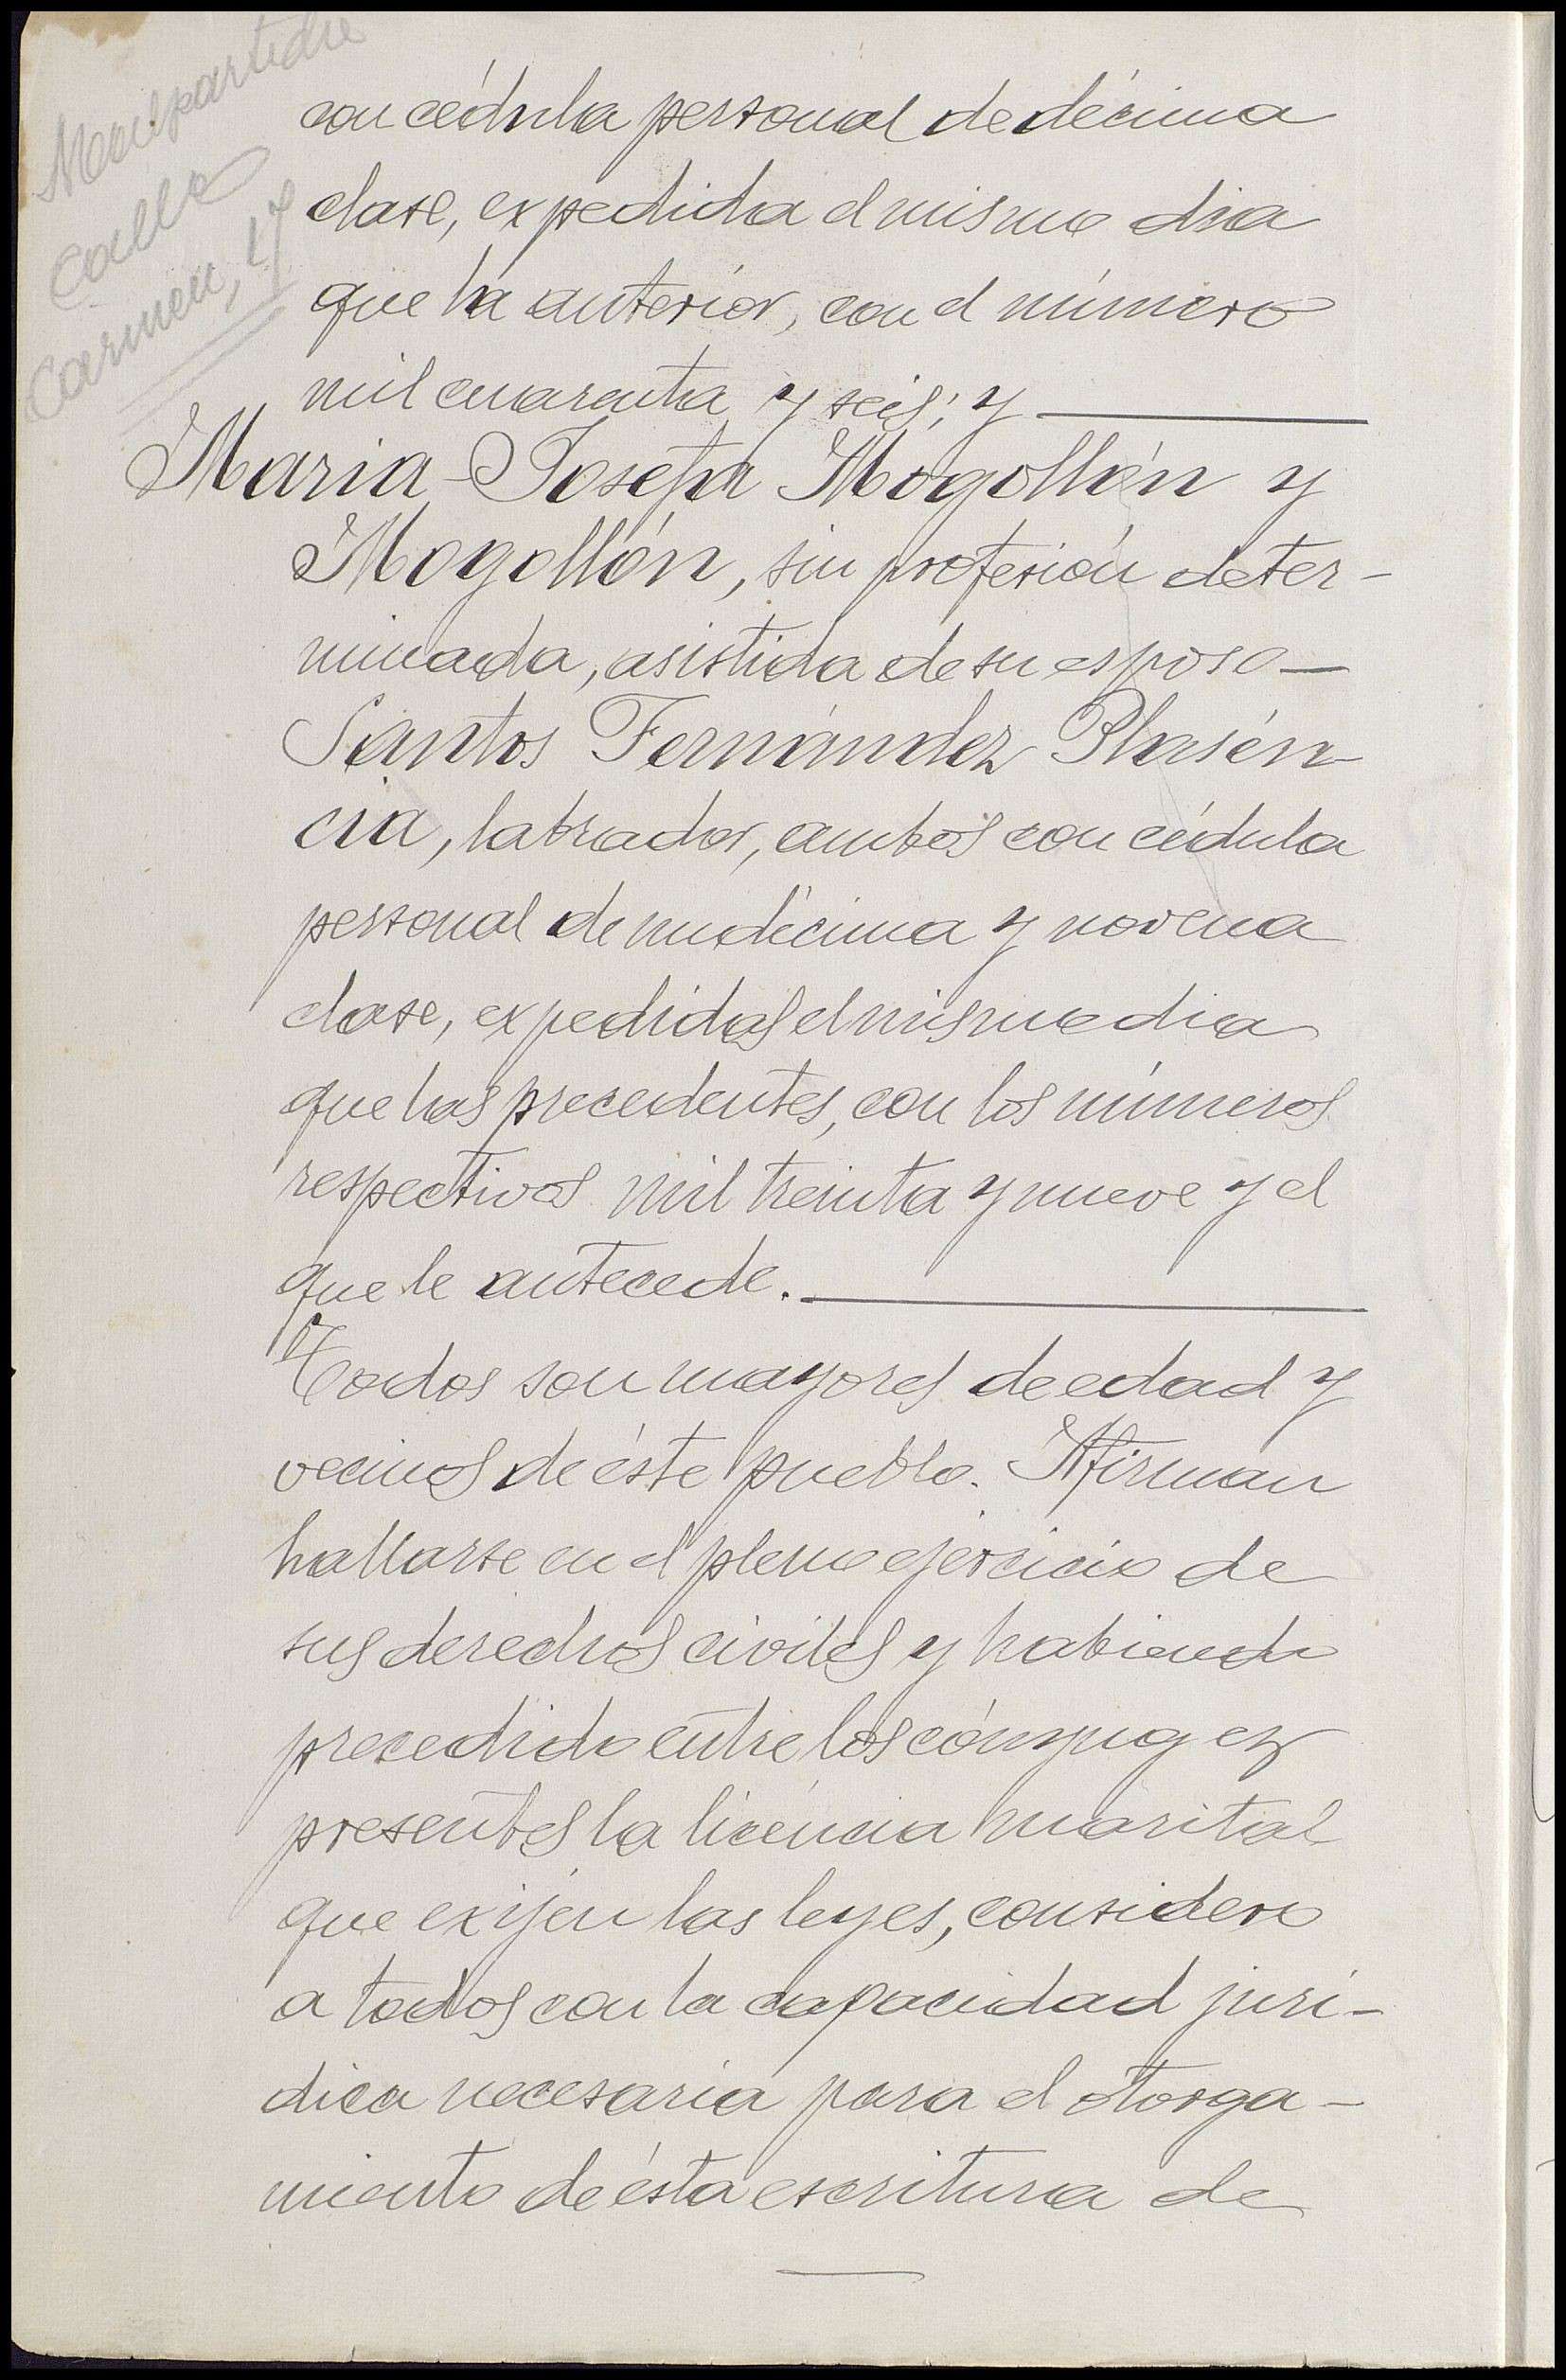 calle
Carmen, 17
con cédula personal de décima
clase, expedida el mismo dia
que la anterior, con el número
mil cuarenta y seis; y
Maria-Josefa Mogollón y
Mogollón, sin profesión deter-
minada, asistida de su esposo
Santos Fernández Plasén-
cia, labrador, ambos con cédula
personal de undécima y novena
clase, expedidas el mismo dia
que las precedentes, con los números
respectivos mil treinta y nueve y el
que le antecede.
Todos son mayores de edad y
vecinos de éste pueblo. Afirman
hallarse en el pleno ejercicio de
sus derechos civiles y habiendo
precedido entre los cónyuges
presentes la licéncia marital
que exijen las leyes, considero
a todos con la capacidad juri-
dica necesaria para el otorga-
miento de ésta escritura de